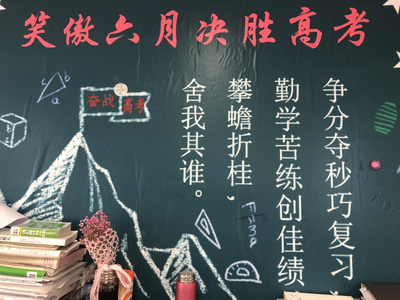 笑傲六月决胜高考
奋战
高考
争分夺秒巧复习，
勤学苦练创佳绩
攀蟾折桂，
舍我其谁。